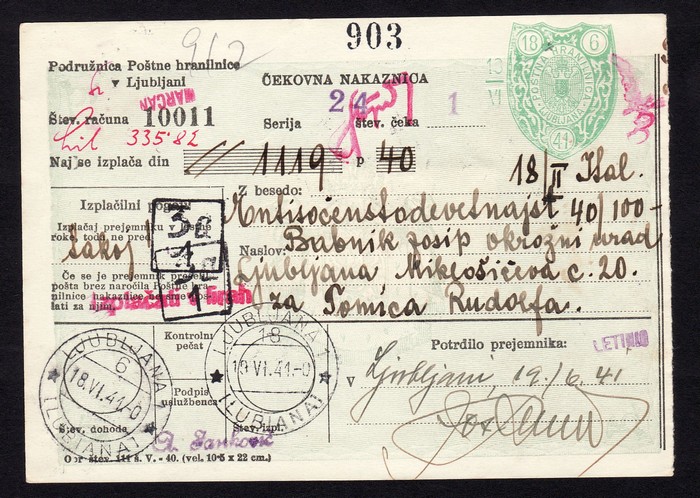 903
912
Podružnica Poštne hranilnice
v Ljubljani
ČEKOVNA NAKAZNICA
18 6
POŠTNA HRANILNICA
LJUBLJANA
41
MARČAN
Štev. računa 10011
Serija 24 štev. čeka 1
Lit 335'82
Naj se izplača din // 1119 p 40
18/II Ital.
Izplačilni pogoji
Z besedo:
Izplačaj prejemniku v
roku, toda ne pred
takoj
Naslov:
40/100-
Babnik Josip okrožni urad
Če se je prejemnik
pošta brez naročila Poštne hra-
nilnice nakaznice
Ljubljana Miklošičeva c. 20.
za Tomica Rudolfa.
Izplačati v lirah
Kontrolni
pečat
Potrdilo prejemnika:
LETINIO
LJUBLJANA 1
6
18.VI.41.-0
(LUBIANA)
LJUBLJANA 1
18
19.VI.41.-0
(LUBIANA)
v Ljubljani, 19./6.41
Podpis
uslužbenca
Štev. dohoda
Štev. izpl.
A. Janković
Obr. štev. 111 š. V. - 40. (vel. 10·5 x 22 cm.)